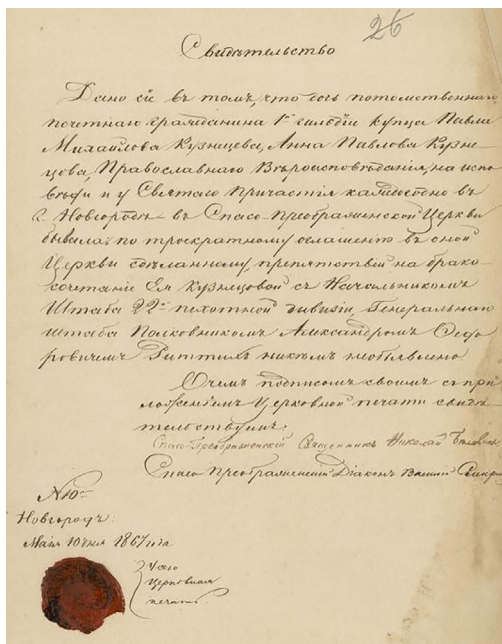 26
Свидѣтельство
Дано сіе въ томъ, что дочь потомственнаго
почетнаго гражданина 1й гильдіи купца Павла
Михайлова Кузнецова, Анна Павлова Кузне-
цова, Православнаго Вѣроисповѣданія, на испо-
вѣди и у Святаго Причастія каждогодно въ
г. Новгородѣ въ Спасо-Преображенской Церкви
бывала; по троекратному оглашенію въ оной
Церкви сдѣланному, препятствій на брако-
сочетаніе Ея Кузнецовой съ Начальникомъ
Штаба 22й пехотной дивизіи, Генеральнаго
штаба Полковникомъ Александромъ Ѳедо-
ровичемъ никѣмъ необъявлено
О чемъ подписомъ своимъ съ при-
ложеніемъ Церковной печати свидѣ-
тельствуемъ.
Спасо-Преображенскій Священникъ Николай
Спасо Преображенскій Діаконъ Василій
Новгородъ.
Мая 10 дня 1867 года
церковная
печать